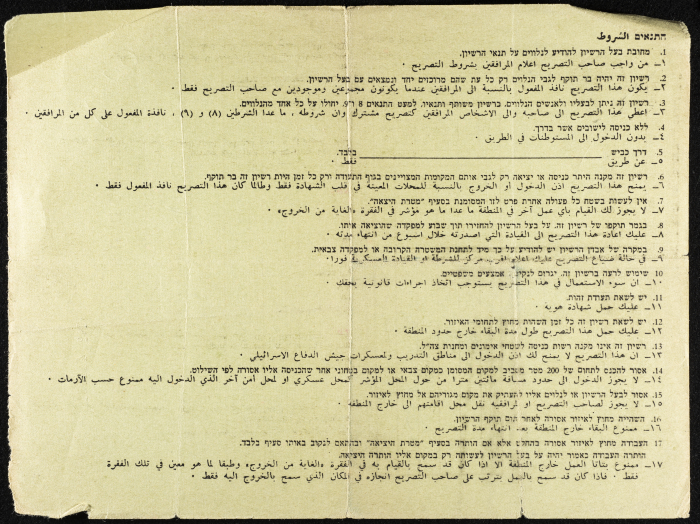 התנאים الشروط
1. מחובת בעל הרשיון להודיע לנלווים על תנאי הרשיון.
١– من واجب صاحب التصريح اعلام المرافقين بشروط التصريح ٠
2. רשיון זה יהיה בר תוקף לגבי הנלוים רק כל עת שהם מרוכזים יחד ונמצאים עם בעל הרשיון.
٢– يكون هذا التصريح نافذ المفعول بالنسبة الى المرافقين عندما يكونون مجتمعين وموجودين مع صاحب التصريح فقط ٠
3. רשיון זה ניתן לבעליו ולאנשים הנלווים, כרשיון משותף ותנאיו, למעט התנאים 8 ו־9, יחולו על כל אחד מהנלווים.
٣– اعطي هذا التصريح الى صاحبه والى الاشخاص المرافقين كتصريح مشترك وان شروطه ، ما عدا الشرطين (٨) و (٩) ، نافذة المفعول على كل من المرافقين ٠
4. ללא כניסה לישובים אשר בדרך.
٤– بدون الدخول الى المستوطنات في الطريق ٠
5. דרך כביש בלבד.
٥– عن طريق فقط ٠
6. רשיון זה מקנה היתר כניסה או יציאה רק לגבי אותם המקומות המצויינים בגוף התעודה ורק כל זמן היות רשיון זה בר תוקף.
٦– يمنح هذا التصريح اذن الدخول او الخروج بالنسبة للمحلات المعينة في قلب الشهادة فقط وطالما كان هذا التصريح نافذ المفعول فقط ٠
7. אין לעשות בשטח כל פעולה אחרת פרט לזו המסומנת בסעיף "מטרת היציאה".
٧– لا يجوز لك القيام بأي عمل آخر في المنطقة ما عدا ما هو مؤشر في الفقرة «الغاية من الخروج»
8. בגמר תוקפו של רשיון זה, על בעל הרשיון להחזירו תוך שבוע למפקדה שהוציאה איתו.
٨– عليك اعادة هذا التصريح الى القيادة التي اصدرته خلال اسبوع من انتهاء مدته ٠
9. במקרה של אבדן הרשיון יש להודיע על כך מיד לתחנת המשטרה הקרובה או למפקדה צבאית.
٩– في حالة ضياع التصريح عليك اعلام اقرب مركز للشرطة او القيادة العسكرية فورا ٠
10. שימוש לרעה ברשיון זה, יגרום לנקיטת אמצעים משפטיים.
١٠– ان سوء الاستعمال في هذا التصريح يستوجب اتخاذ اجراءات قانونية بحقك ٠
11. יש לשאת תעודת זהות.
١١– عليك حمل شهادة هوية ٠
12. יש לשאת רשיון זה כל זמן השהות מחוץ לתחומי האיזור.
١٢– عليك حمل هذا التصريح طول مدة البقاء خارج حدود المنطقة ٠
13. רשיון זה אינו מקנה רשות כניסה לשטחי אימונים ומחנות צה"ל.
١٣– ان هذا التصريح لا يمنح لك اذن الدخول الى مناطق التدريب ولمعسكرات جيش الدفاع الاسرائيلي ٠
14. אסור להכנס לתחום של 200 מטר מסביב למקום המסומן כמקום צבאי או למקום בטחוני אחר שהכניסה אליו אסורה לפי השילוט.
١٤– لا يجوز الدخول الى حدود مسافة مائتين مترا من حول المحل المؤشر كمحل عسكري او لمحل امن آخر الذي الدخول اليه ممنوع حسب الآرمات ٠
15. אסור לבעל הרשיון או לנלוים אליו להעתיק את מקום מגוריהם אל מחוץ לאיזור.
١٥– لا يجوز لصاحب التصريح او لمرافقيه نقل محل اقامتهم الى خارج المنطقة ٠
16. השהייה מחוץ לאיזור אסורה לאחר תום תוקף הרשיון.
١٦– ممنوع البقاء خارج المنطقة بعد انتهاء مدة التصريح ٠
17 העבודה מחוץ לאיזור אסורה בהחלט אלא אם הותרה בסעיף "מטרת היציאה" ובהתאם לנקוב באיתו סעיף בלבד.
הותרה העבודה כאמור יהיה על בעל הרשיון לעשותה רק במקום אליו הותרה היציאה.
١٧– ممنوع بتاتا العمل خارج المنطقة الا اذا كان قد سمح بالقيام به في الفقرة «الغاية من الخروج» وطبقا لما هو معين في تلك الفقرة
فقط ٠ فاذا كان قد سمح بالعمل يترتب على صاحب التصريح انجازه في المكان الذي سمح بالخروج اليه فقط ٠